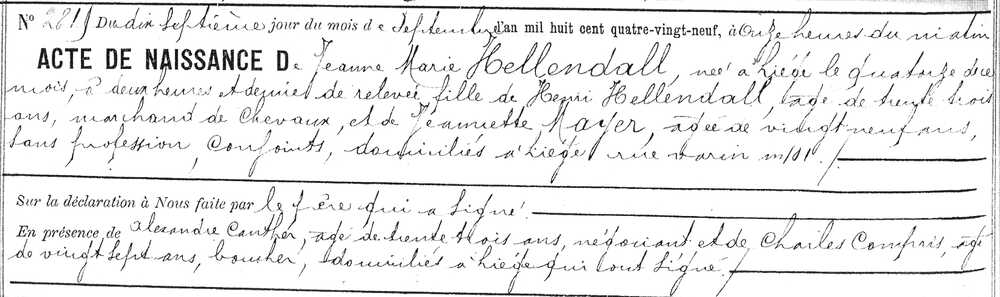 N° 2819 Du dix Septième jour du mois de Septembre d'an mil huit cent quatre-vingt-neuf, à onze heures du matin
ACTE DE NAISSANCE De Jeanne Marie Hellendall, née à Liége le quatorze de ce
mois, à deux heures et demie de relevée, fille de Henri Hellendall, âgé de trente trois
ans, marchand de Chevaux, et de Jeannette Mayer, agée de vingt neuf ans,
sans profession, conjoints, domiciliés à Liége rue
Sur la déclaration à Nous faite par le Père qui a signé.
En présence de alexandre Canther, agé de trente trois ans, négociant et de Charles agé
de vingt sept ans, boucher, domiciliés à Liége qui ont signé.